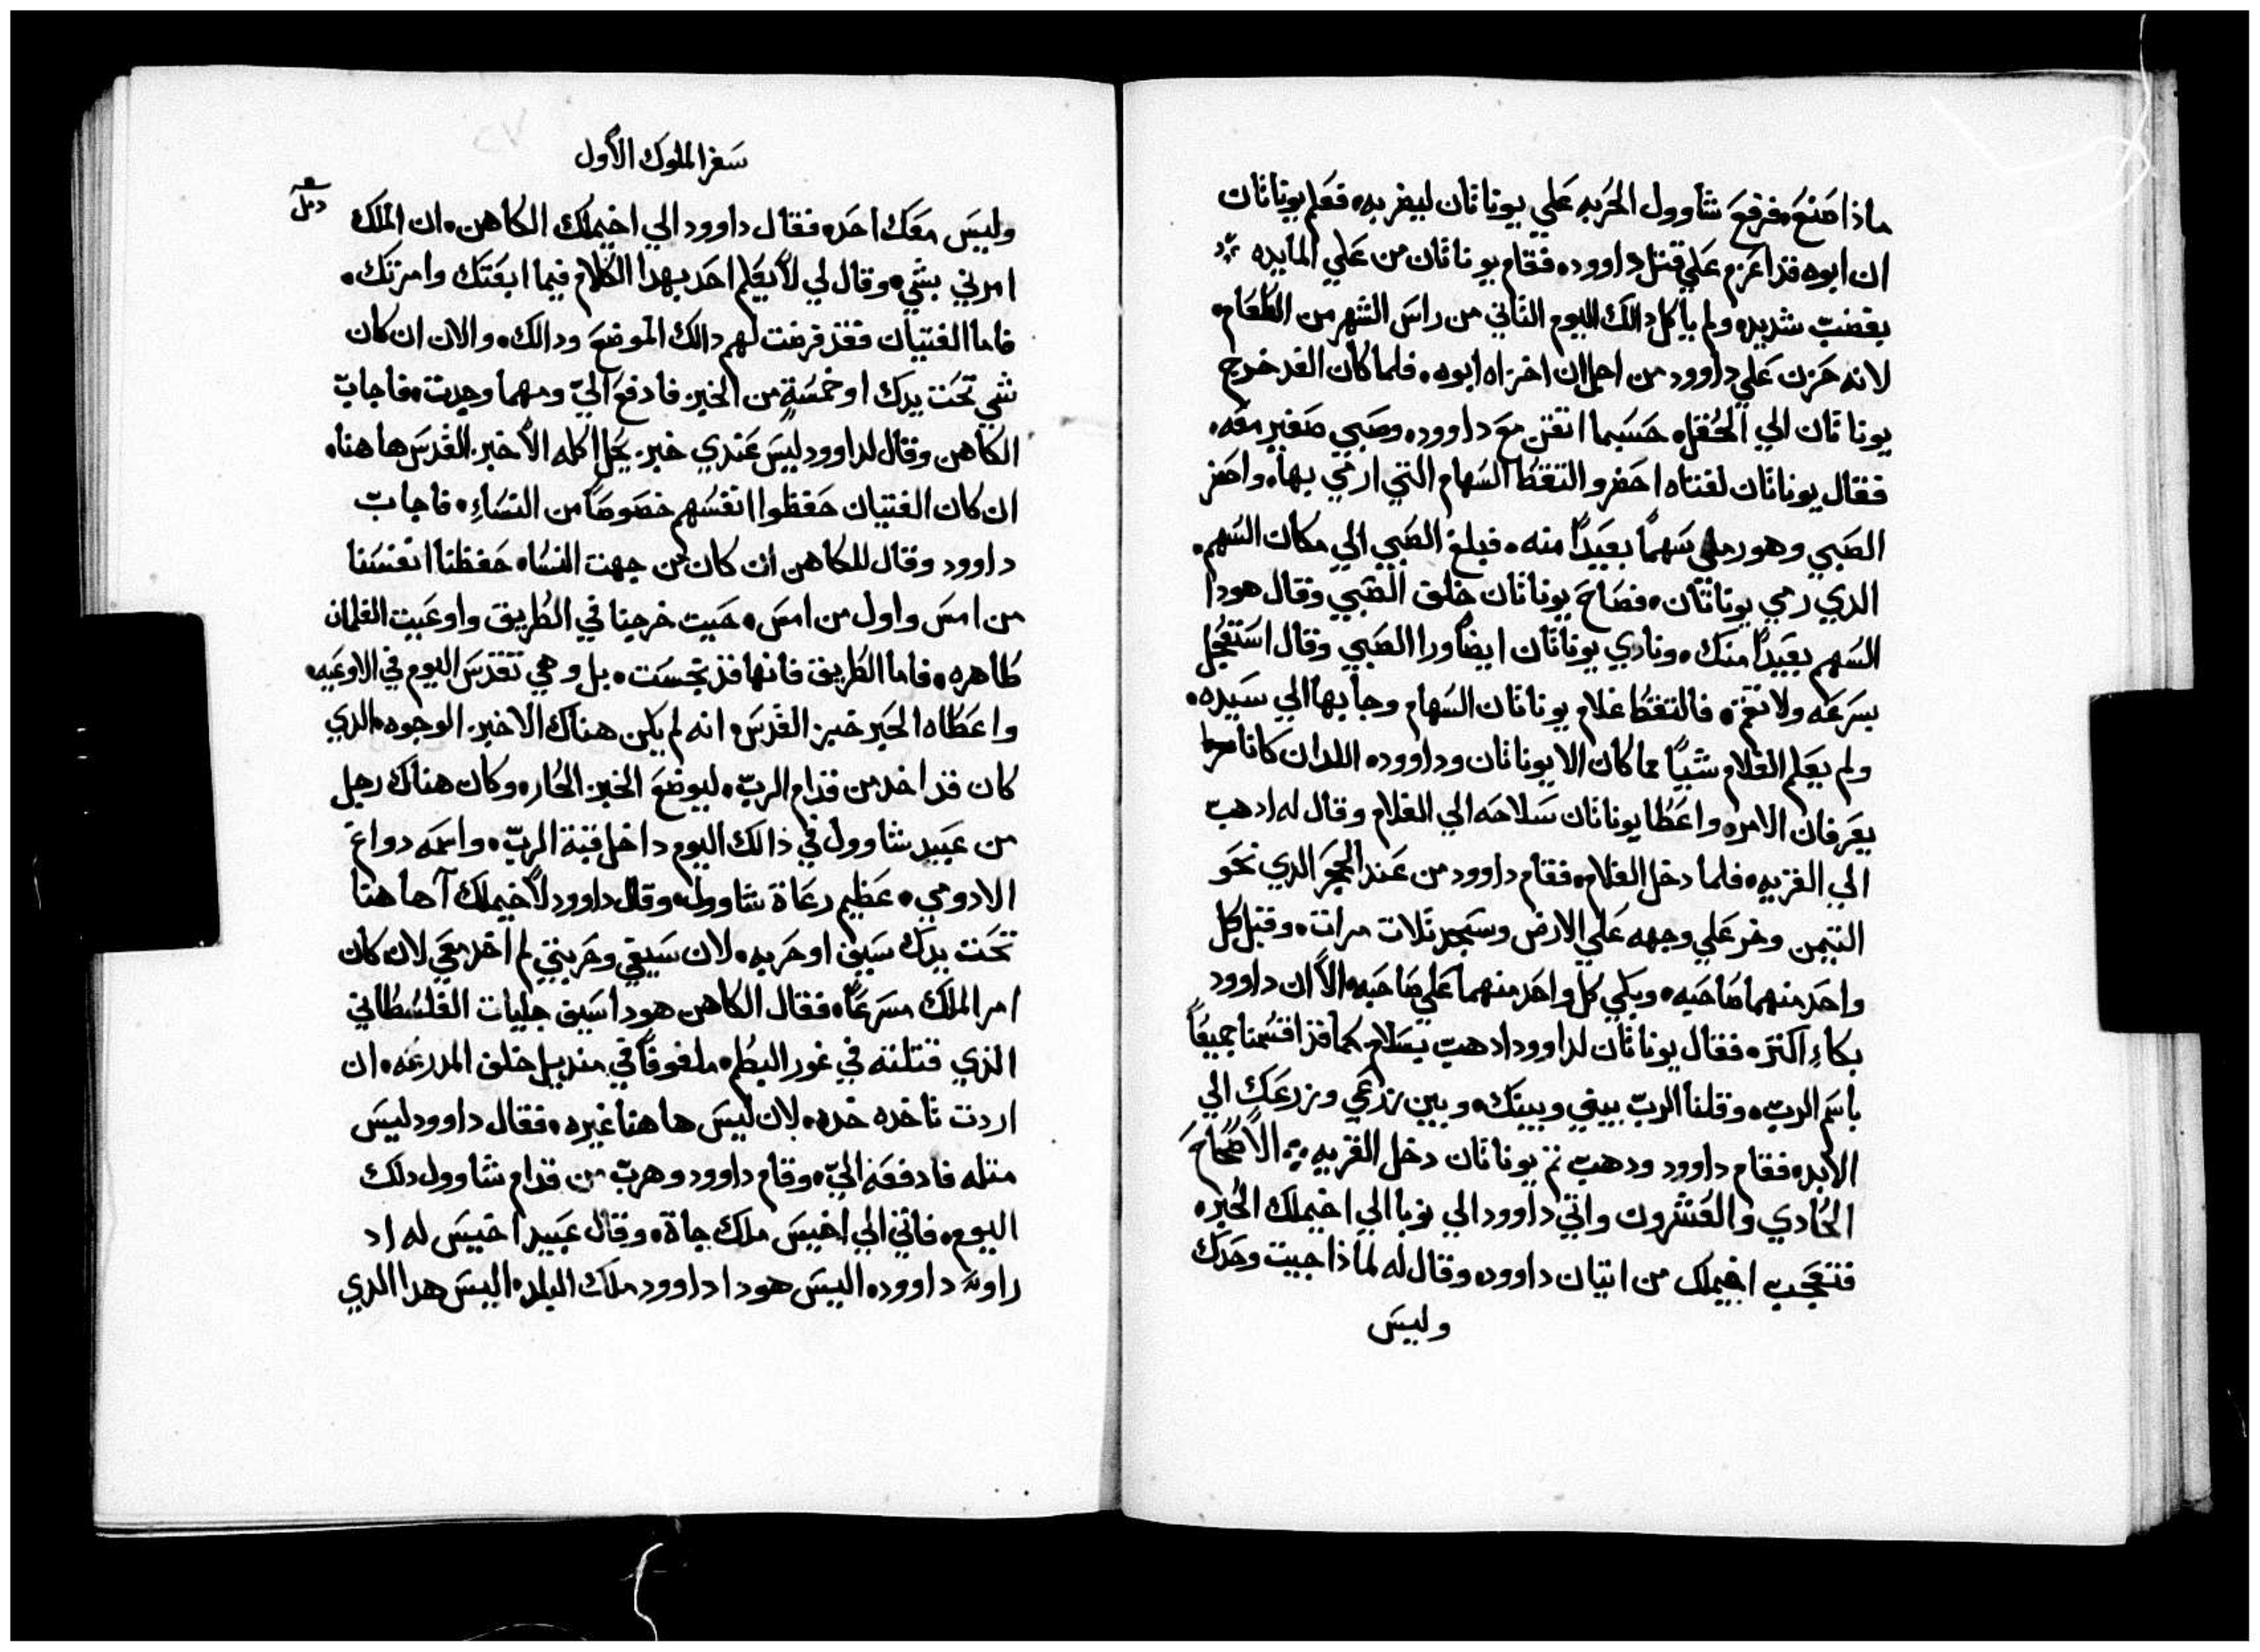 ماذا صنع، فرفع شاوول الحربه علي يوناثان ليضربه، فعلم يوناثان
ان ابوه قد اعزم علي قتل داوود، فقام يوناثان من علي المايده
بغضب شديد، ولم ياكل دالك اليوم الثاني من راس الشهر من الطعام،
لانه حزن علي داوود من اجل ان اخزاه ابوه، فلما كان الغد خرج
يوناثان الي الحقل، حسبما اتفق مع داوود، وصبي صغير معه،
فقال يوناثان لفتاه احضر والتقط السهام التي ارمي بها، واحضر
الصبي وهو رمي سهماً بعيداً منه، فبلغ الصبي الي مكان السهم،
الدي رمي يوناثان، فصاح يوناثان خلف الصبي وقال هودا
السهم بعيداً منك، ونادي يوناثان ايضاً ورا الصبي وقال استعجل
بسرعه ولا تقم، فالتقط غلام يوناثان السهام وجا بها الي سيده،
ولم يعلم الغلام شيياً مما كان الا يوناثان وداوود، اللدان كانا
يعرفان الامر، واعطا يوناثان سلاحه الي الغلام وقال له ادهب
الي القريه، فلما دخل الغلام، فقام داوود من عند الحجر الدي نحو
التيمن وخر علي وجهه علي الارض وسجد ثلات مرات، وقبل كل
واحد منهما صاحبه، وبكي كل واحد منهما علي صاحبه، الا ان داوود
بكاءِ اكتر، فقال يوناثان لداوود ادهب بسلام، كما قد اقسمنا جميعاً
باسم الرب، وقلنا الرب بيني وبينك، وبين زرعي وزرعك الي
الابد، فقام داوود ودهب ثم يوناثان دخل القريه الاصحاح
الحادي والعشرون واتي داوود الي نوبا الي اخيملك الحبر،
فتعجب اخيملك من اتيان داوود، وقال له لماذا جيت وحدك
وليس
سفر الملوك الأول
وليس معك احد، فقال داوود الي اخيملك الكاهن، ان الملك
امرني بشي، وقال لي لا يعلم احد بهدا الكلام فيما ابعتك وامرتك،
فاما الفتيان فقد فرضت لهم دالك الموضع ودالك، والان ان كان
شي تحت يدك او خمسةٍ من الخبز فادفع اليّ ومهما وجدت، فاجاب
الكاهن وقال لداوود ليس عندي خبز يحل اكله الا خبز القدس هاهنا،
ان كان الفتيان حفظوا انفسهم خصوصاً من النساءِ، فاجاب
داوود وقال للكاهن ان كان من جهت النسا، حفظنا انفسنا
من امس واول من امس، حيت خرجنا في الطريق واوعيت الغلمان
طاهره، فاما الطريق فانها قد نجست، بل وهي تقدس اليوم في الاوعيه،
واعطاه الحبر خبز القدس، انه لم يكن هناك الا خبز الوجوه، الدي
كان قد اخد من قدام الرب، ليوضع الخبز الحار، وكان هناك رجل
من عبيد شاوول في ذالك اليوم داخل قبة الرب، واسمه دواغ
الادومي، عظيم رعاة شاوول، وقال داوود لاخيملك آهاهنا
تحت يدك سيف او حربه، لان سيفي وحربتي لم اخد معي لان كان
امر الملك مسرعاً، فقال الكاهن هودا سيف جليات الفلسطاني
الذي قتلته في غور البطم، ملفوفاً في منديل خلف المدرعه، ان
اردت تاخده خده، لان ليس هاهنا غيره، فقال داوود ليس
متله فادفعه اليّ، وقام داوود وهرب من قدام شاوول دلك
اليوم، فاتي الي اخيس ملك جاة، وقال عبيد اخيس له اد
راوه داوود، اليس هودا داوود ملك البلد، اليس هدا الدي